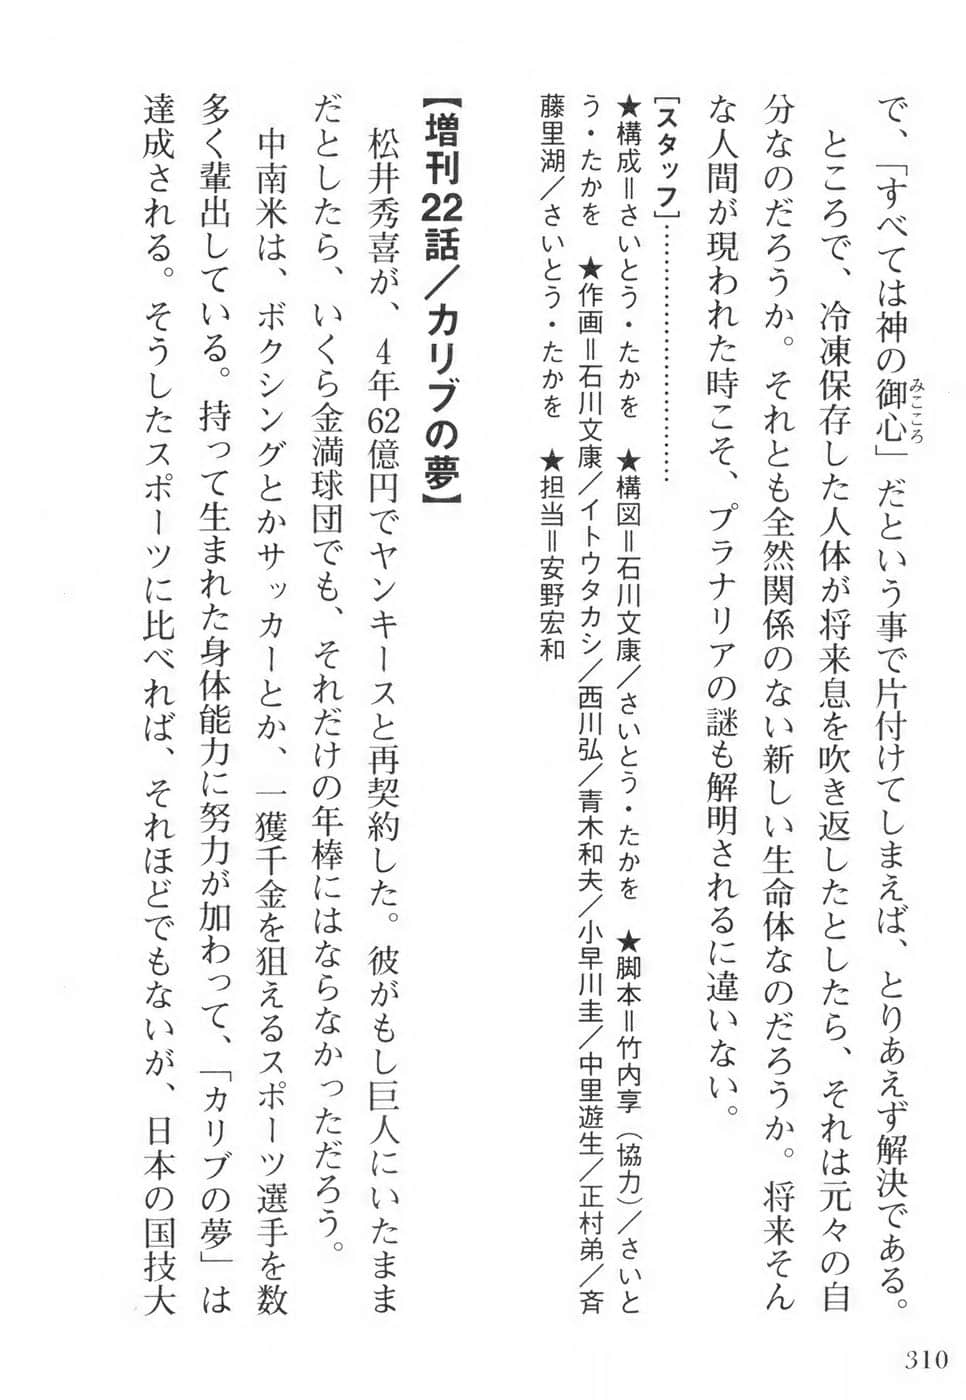 で、「すべては神の御心」だという事で片付けてしまえば、とりあえず解決である。
みこころ
ところで、冷凍保存した人体が将来息を吹き返したとしたら、それは元々の自
分なのだろうか。それとも全然関係のない新しい生命体なのだろうか。将来そん
な人間が現われた時こそ、プラナリアの謎も解明されるに違いない。
[スタッフ]…………………………
★構成＝さいとう・たかを ★構図＝石川文康／さいとう・たかを ★脚本＝竹内享（協力）／さいと
う・たかを ★作画＝石川文康／イトウタカシ／西川弘／青木和夫／小早川圭／中里遊生／正村弟／斉
藤里湖／さいとう・たかを ★担当＝安野宏和
【増刊22話／カリブの夢】
松井秀喜が、4年62億円でヤンキースと再契約した。彼がもし巨人にいたまま
だとしたら、いくら金満球団でも、それだけの年棒にはならなかっただろう。
中南米は、ボクシングとかサッカーとか、一獲千金を狙えるスポーツ選手を数
多く輩出している。持って生まれた身体能力に努力が加わって、「カリブの夢」は
達成される。そうしたスポーツに比べれば、それほどでもないが、日本の国技大
310